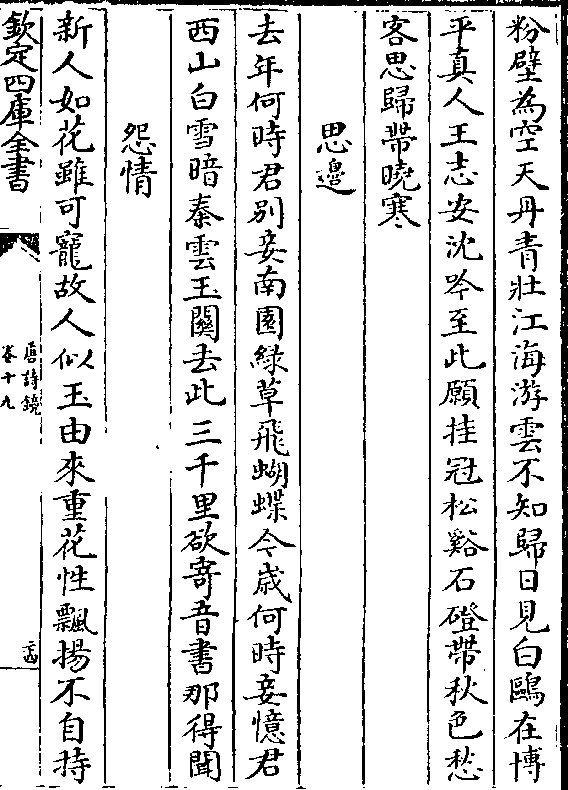 粉壁為空天丹青壯江海游雲不知歸日見白鷗在博
平真人王志安沈吟至此願挂冠松谿石磴帶秋色愁
客思歸帶曉寒
思邊
去年何時君別妾南園綠草飛蝴蝶今歲何時妾憶君
西山白雪暗秦雲玉關去此三千里欲寄音書那得聞
怨情
新人如花雖可寵故人似玉由來重花性飄揚不自持
欽定四庫全書
唐詩鏡
卷十九